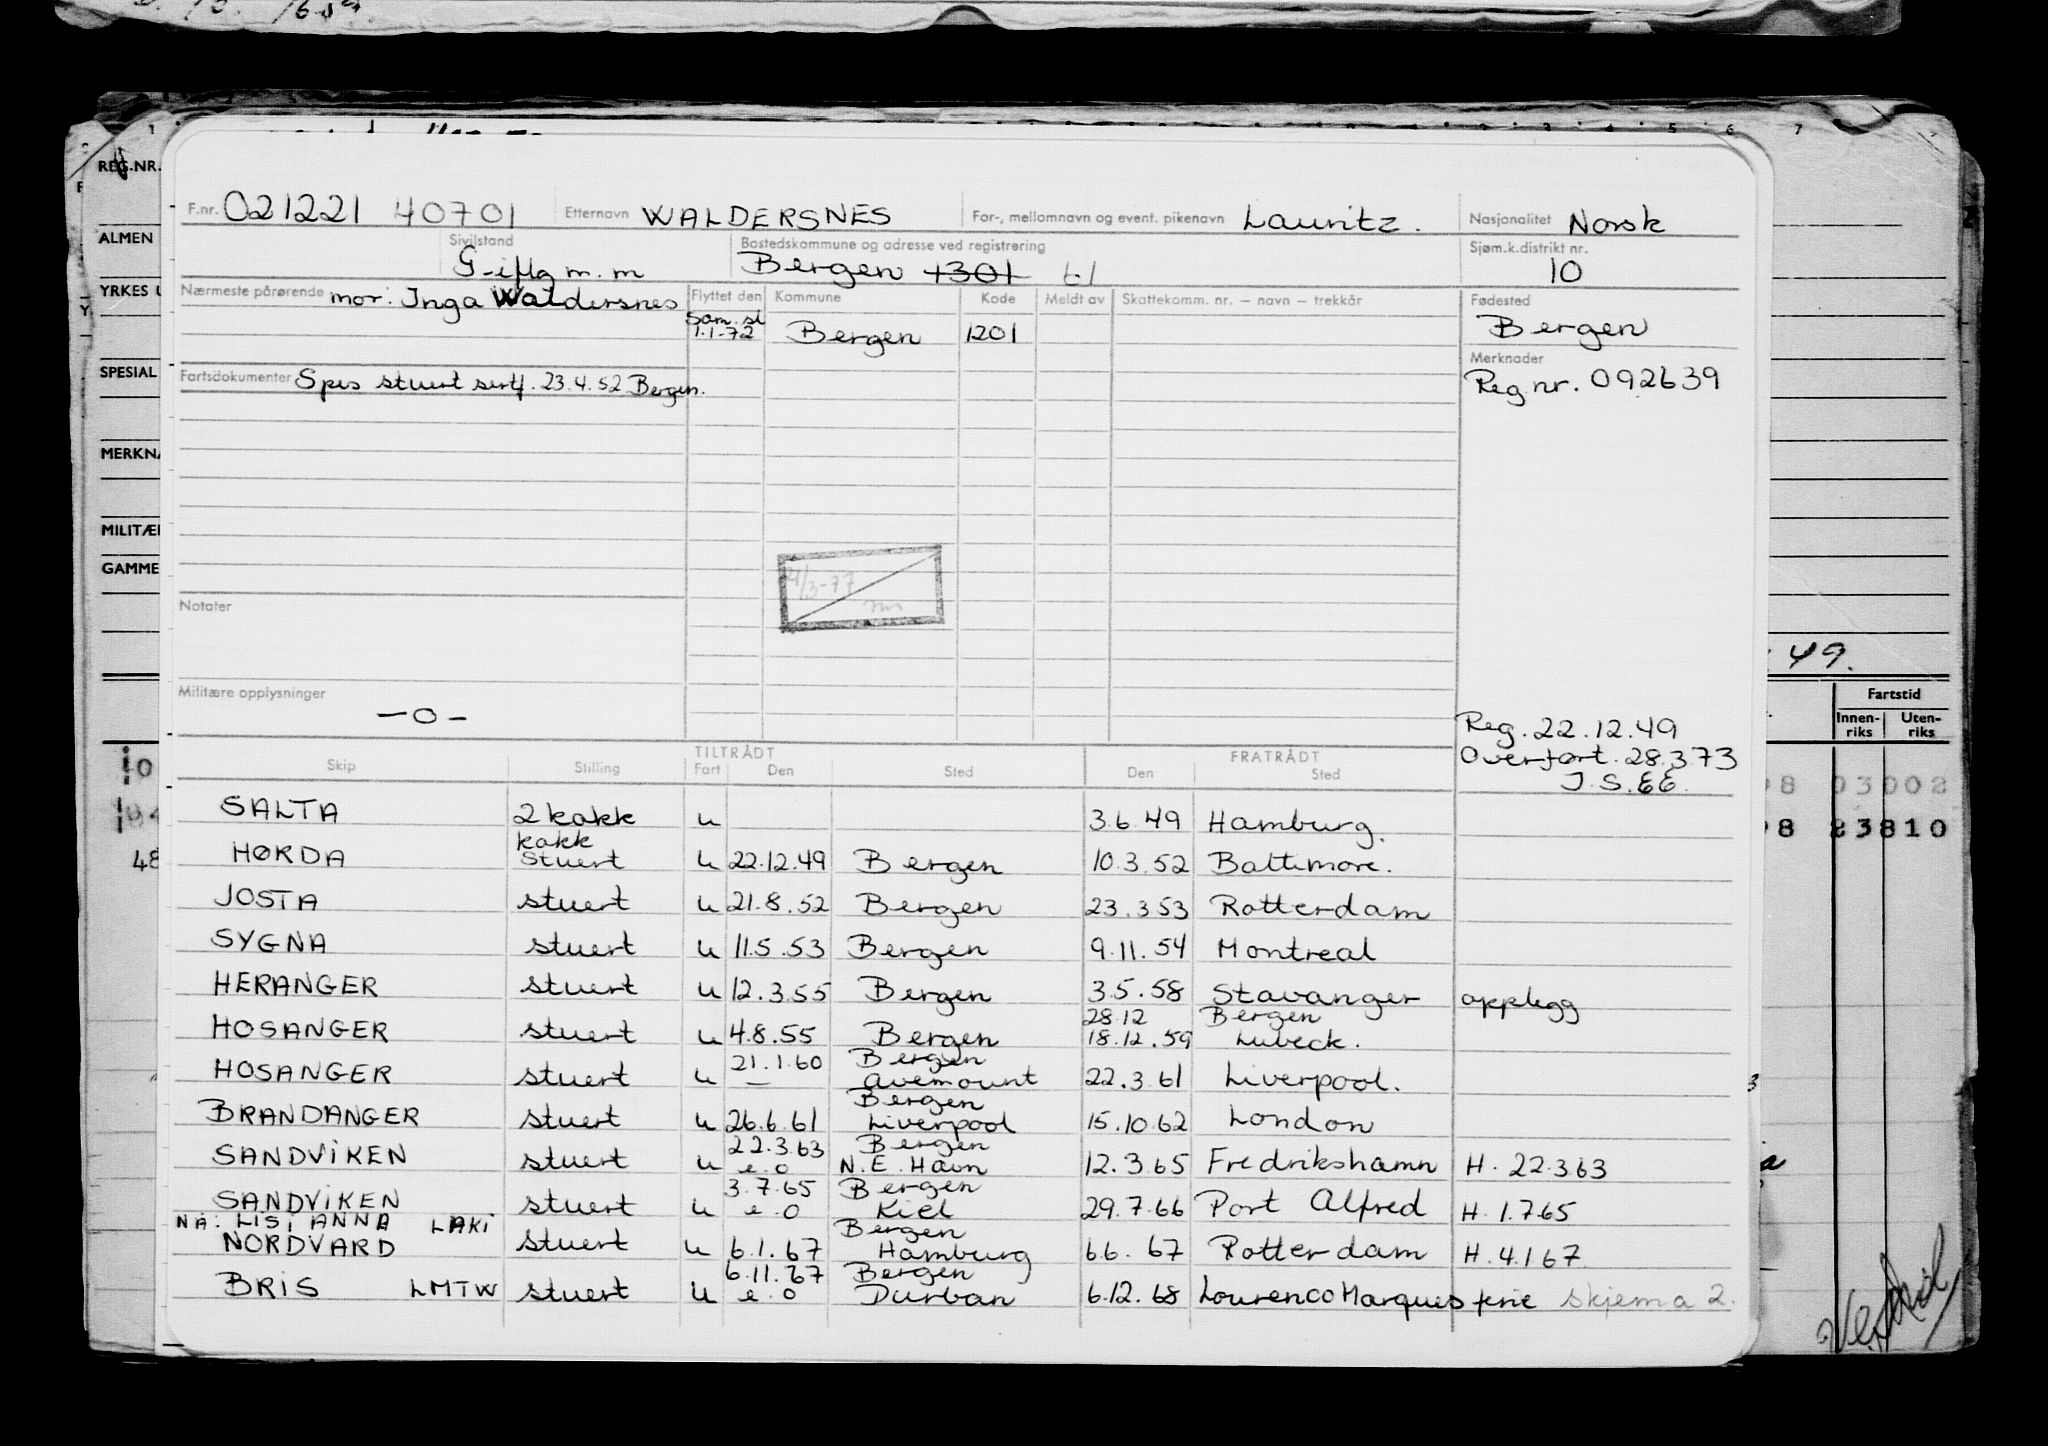 1 3 4 5 6 7
REG.NR.
F.nr. 021221 40701 Etternavn WALDERSNES For-, mellomnavn og event. pikenavn Lauritz. Nasjonalitet Norsk
ALMEN Sivilstand Bostedskommune og adresse ved registrering Sjøm.k.distrikt nr.
G-iftg m. m Bergen 1301 10
YRKES Nærmeste pårørende mor: Inga Waldersnes Flyttet den Kommune Kode Meldt av Skattekomm. nr. – navn – trekkår Fødested
1.1-72 Bergen 1201 Bergen
Merknader
SPESIAL Fartsdokumenter Spes stuert sertf. 23.4.52 Bergen. Reg nr. 092639
MERKNA
MILITÆR
GAMME
4/3-77
Notater
49.
Militære opplysninger Fartstid
—0— Reg. 22.12.49 Innen-riks Uten-riks
TILTRÅDT FRATRÅDT Overført. 28.3.73
Skip Stilling Fart Den Sted Den Sted J.S.EE.
03002
SALTA 2 kokk u 3.6.49 Hamburg.
23810
kokk
HØRDA stuert u 22.12.49 Bergen 10.3.52 Baltimore.
48
JOSTA stuert u 21.8.52 Bergen 23.3.53 Rotterdam
SYGNA stuert u 11.5.53 Bergen 9.11.54 Montreal
HERANGER stuert u 12.3.55 Bergen 3.5.58 Stavanger opplegg
28.12 Bergen
HOSANGER stuert u 4.8.55 Bergen 18.12.59 Lubeck.
21.1.60 Bergen
HOSANGER stuert u — avemount 22.3.61 Liverpool.
Bergen
BRANDANGER stuert u 26.6.61 Liverpool 15.10.62 London
22.3.63 Bergen
SANDVIKEN stuert u e.o N.E. Havn 12.3.65 Fredrikshamn H. 22.3.63
3.7.65 Bergen
SANDVIKEN stuert u e.o Kiel 29.7.66 Port Alfred H. 1.7.65
NA: LISI ANNA LAKI Bergen
NORDVARD stuert u 6.1.67 Hamburg 6.6.67 Rotterdam H. 4.1.67
6.11.67 Bergen
BRIS LMTW stuert u e.o Durban 6.12.68 Lourenco Marques ferie skjema 2.